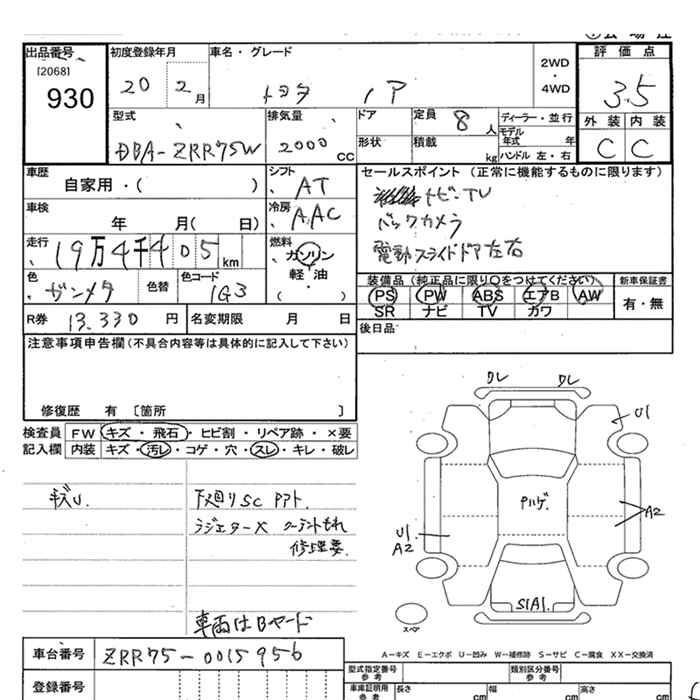 出品番号 初度登録年月 車名・グレード 評価点
[2068] 930
20 2月 トヨタ ノア 2WD・4WD 3.5
外装 内装
C C
型式 排気量 ドア 定員 8人 ディーラー・並行
DBA-ZRR75W 2000cc 形状 積載 kg モデル年式 年
ハンドル 左・右
車歴 自家用・( ) シフト AT
セールスポイント (正常に機能するものに限ります)
ナビ・TV
バックカメラ
電動スライドドア左右
車検 年 月( 日) 冷房 AAC
走行 19万4千405km 燃料 ガソリン
軽油
( )
色 ガンメタ 色替 色コード 1G3
装備品 (純正品に限り○をつけてください) 新車保証書
PS PW ABS エアB AW 有・無
SR ナビ TV カワ
R券 13.330円 名変期限 月 日
後日品
注意事項申告欄(不具合内容等は具体的に記入して下さい)
修復歴 有 〔箇所 〕
検査員 FW キズ・飛石・ヒビ割・リペア跡・×要
記入欄 内装 キズ・汚レ・コゲ・穴・スレ・キレ・破レ
キズU.
下廻りSC アト.
ラジエターX クーラントもれ
修理要.
車両はBヤード
クレ クレ
U1
A2
U1
A2
S1A1.
スペア
A-キズ E-エクボ U-凹み W-補修跡 S-サビ C-腐食 XX-交換済
車台番号 ZRR75-0015956
型式指定番号 参考 類別区分番号 参考
登録番号
車庫証明用 参考 長さ cm 幅 cm 高さ cm